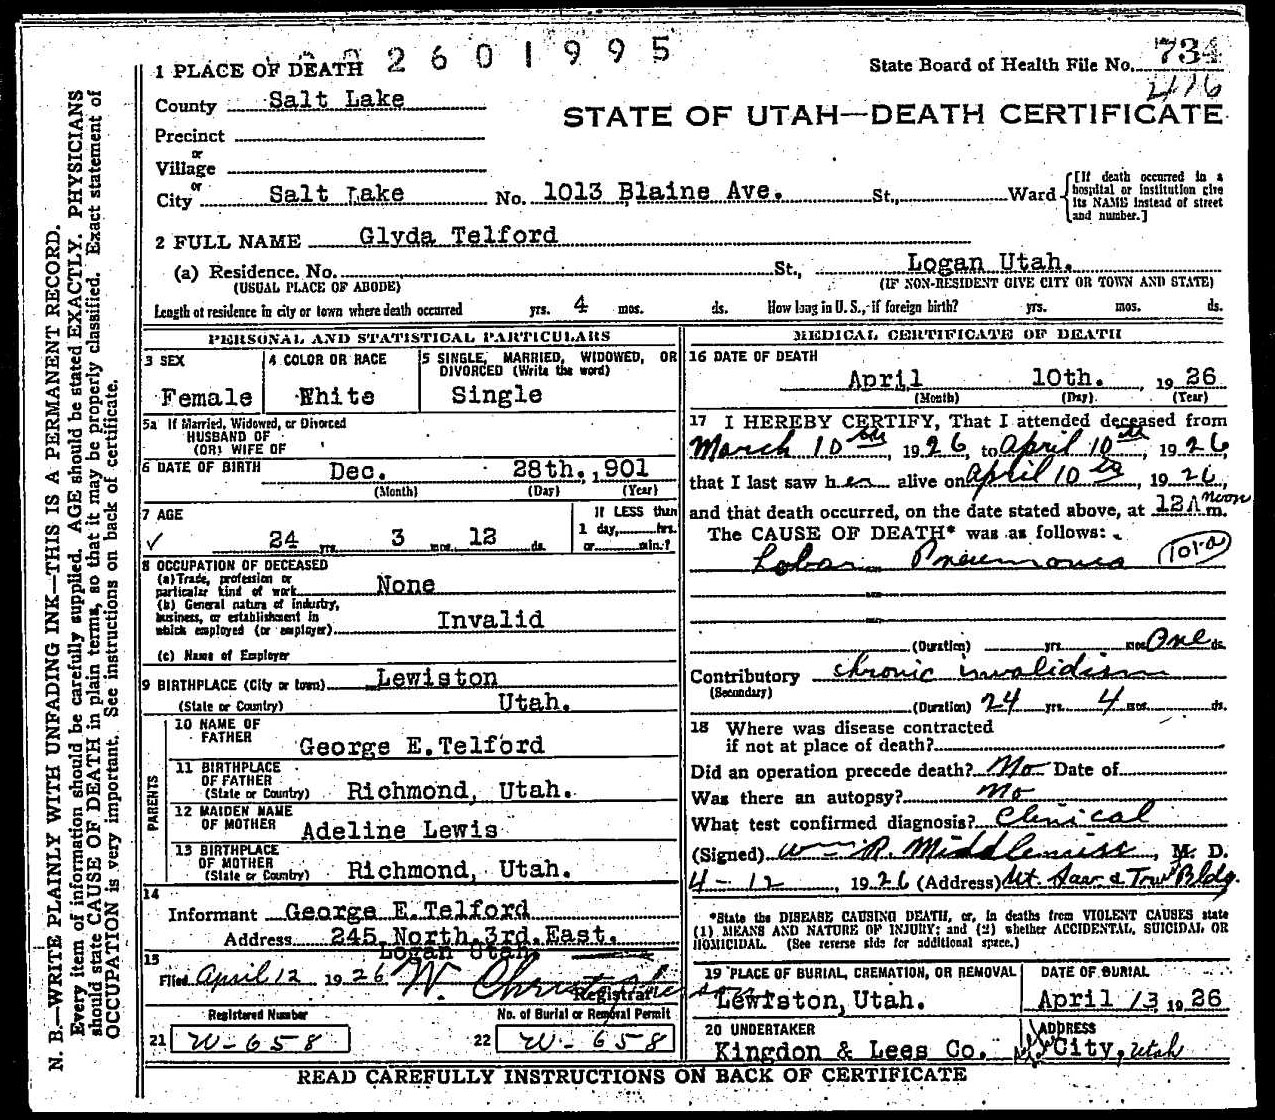 2601995
1 PLACE OF DEATH
State Board of Health File No. 734
416
County Salt Lake
STATE OF UTAH—DEATH CERTIFICATE
Precinct
or
Village
or
City Salt Lake No. 1013 Blaine Ave. St., Ward
[If death occurred in a hospital or institution give its NAME instead of street and number.]
2 FULL NAME Glyda Telford
(a) Residence. No. St., Logan Utah.
(USUAL PLACE OF ABODE) (IF NON-RESIDENT GIVE CITY OR TOWN AND STATE)
Length of residence in city or town where death occurred yrs. 4 mos. ds. How long in U. S., if foreign birth? yrs. mos. ds.
PERSONAL AND STATISTICAL PARTICULARS
3 SEX
Female
4 COLOR OR RACE
White
5 SINGLE, MARRIED, WIDOWED, OR
DIVORCED (Write the word)
Single
5a If Married, Widowed, or Divorced
HUSBAND OF
(OR) WIFE OF
6 DATE OF BIRTH Dec. 28th., 1901
(Month) (Day) (Year)
7 AGE
24 yrs. 3 mos. 12 ds.
If LESS than
1 day, hrs.
or min.?
8 OCCUPATION OF DECEASED
(a) Trade, profession or
particular kind of work None
(b) General nature of industry,
business, or establishment in
which employed (or employer) Invalid
(c) Name of Employer
9 BIRTHPLACE (City or town) Lewiston
(State or Country) Utah.
PARENTS
10 NAME OF
FATHER George E. Telford
11 BIRTHPLACE
OF FATHER
(State or Country) Richmond, Utah.
12 MAIDEN NAME
OF MOTHER Adeline Lewis
13 BIRTHPLACE
OF MOTHER
(State or Country) Richmond, Utah.
14
Informant George E. Telford
Address 245 North 3rd. East.
Logan Utah.
15
Filed April 12 1926 W. Christopherson
Registrar
Registered Number
21 W-658
No. of Burial or Removal Permit
22 W-658
MEDICAL CERTIFICATE OF DEATH
16 DATE OF DEATH
April 10th. , 1926
(Month) (Day) (Year)
17 I HEREBY CERTIFY, That I attended deceased from
March 10th, 1926, to April 10th, 1926,
that I last saw her alive on April 10, 1926,
and that death occurred, on the date stated above, at 12 A m. noon
The CAUSE OF DEATH* was as follows:
Lobar Pneumonia 101-a
(Duration) yrs. mos. One ds.
Contributory chronic invalidism
(Secondary)
(Duration) 24 yrs. 4 mos. ds.
18 Where was disease contracted
if not at place of death?
Did an operation precede death? No Date of
Was there an autopsy? No
What test confirmed diagnosis? Clinical
(Signed) Wm R. Middlemiss, M. D.
4-12, 1926 (Address) Ut. Sav. & Trust Bldg.
*State the DISEASE CAUSING DEATH, or, in deaths from VIOLENT CAUSES state
(1) MEANS AND NATURE OF INJURY; and (2) whether ACCIDENTAL, SUICIDAL OR
HOMICIDAL. (See reverse side for additional space.)
19 PLACE OF BURIAL, CREMATION, OR REMOVAL
Lewiston, Utah.
DATE OF BURIAL
April 13 1926
20 UNDERTAKER
Kingdon & Lees Co.
ADDRESS
City, Utah
READ CAREFULLY INSTRUCTIONS ON BACK OF CERTIFICATE
N. B.—WRITE PLAINLY WITH UNFADING INK—THIS IS A PERMANENT RECORD.
Every item of information should be carefully supplied. AGE should be stated EXACTLY. PHYSICIANS
should state CAUSE OF DEATH in plain terms, so that it may be properly classified. Exact statement of
OCCUPATION is very important. See instructions on back of certificate.